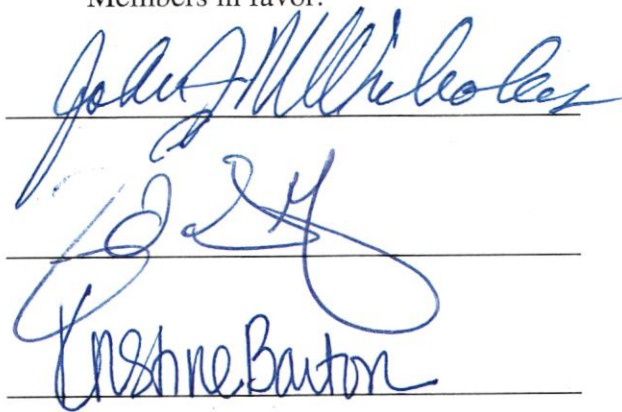 Members in favor:
John J. McNicholas
Kristine Barton